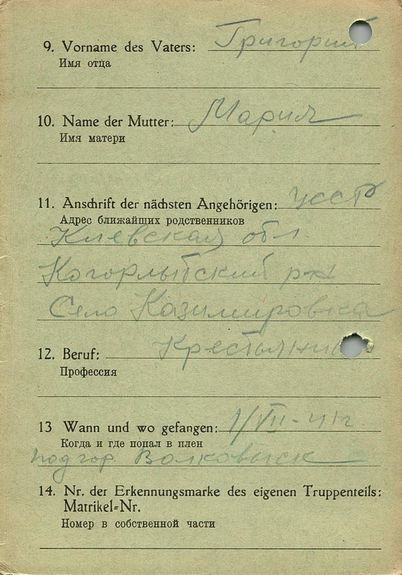 9. Vorname des Vaters: Григорий
Имя отца
10. Name der Mutter: Мария
Имя матери
11. Anschrift der nächsten Angehörigen: УССР
Адрес ближайших родственников
Киевская обл.
Когорлытский р-н
Село Казимировка
12. Beruf: Крестьянин
Профессия
13 Wann und wo gefangen: 1/VII-41г
Когда и где попал в плен
под гор. Волковыск
14. Nr. der Erkennungsmarke des eigenen Truppenteils:
Matrikel=Nr.
Номер в собственной части